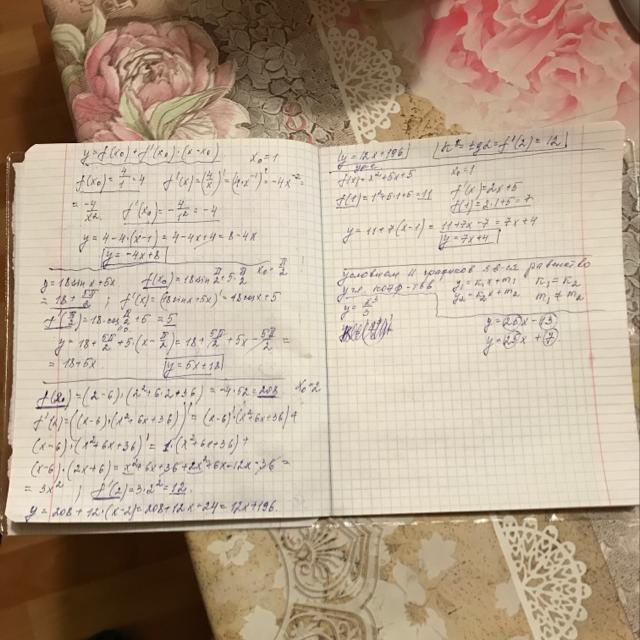 y = f(x₀) + f'(x₀)·(x-x₀) x₀=1
f(x₀) = 4/1 = 4 f'(x) = (4/x)' = (4·x⁻¹)' = -4x⁻² =
= -4/x² f'(x₀) = -4/1² = -4
y = 4-4·(x-1) = 4-4x+4 = 8-4x
y = -4x+8
y = 18sinx+5x f(x₀) = 18sin π/2 + 5·π/2 x₀ = π/2
= 18 + 5π/2 ; f'(x) = (18sinx+5x)' = 18cosx+5
f'(π/2) = 18·cos π/2 + 5 = 5
y = 18 + 5π/2 + 5(x - π/2) = 18 + 5π/2 + 5x - 5π/2 =
= 18+5x y = 5x+18
f(x₀) = (2-6)·(2²+6·2+36) = -4·52 = 208 x₀=2
f'(2) = ((x-6)·(x²+6x+36))' = (x-6)'·(x²+6x+36)+
(x-6)·(x²+6x+36)' = 1·(x²+6x+36)+
(x-6)·(2x+6) = x²+6x+36+2x²+6x-12x-36 =
= 3x² ; f'(2) = 3·2² = 12.
y = 208+12·(x-2) = 208+12x-24 = 12x+196.
y = 12x+196 tgα = f'(2) = 12
f(x) = x²+5x+5 x₀=1
f(1) = 1²+5·1+5 = 11 f'(x) = 2x+5
f'(1) = 2·1+5 = 7
y = 11+7(x-1) = 11+7x-7 = 7x+4
y = 7x+4
условием || графиков яв-ся равенство
угл. коэф-тов y₁ = k₁x+m₁ k₁ = k₂
y₂ = k₂x+m₂ m₁ ≠ m₂